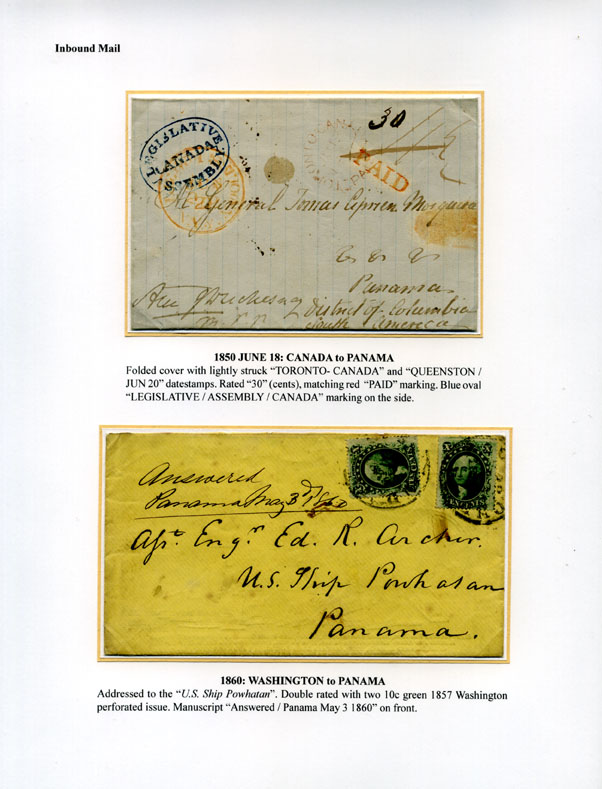 Inbound Mail
LEGISLATIVE
CANADA
ASSEMBLY
30
PAID
General Tomas Cyprien Mosquera
Panama
District of Columbia
South America
1850 JUNE 18: CANADA to PANAMA
Folded cover with lightly struck “TORONTO- CANADA” and “QUEENSTON /
JUN 20” datestamps. Rated “30” (cents), matching red “PAID” marking. Blue oval
“LEGISLATIVE / ASSEMBLY / CANADA” marking on the side.
Answered
Panama May 3d 1860
Asst. Engr. Ed. R. Archer.
U.S. Ship Powhatan
Panama.
1860: WASHINGTON to PANAMA
Addressed to the “U.S. Ship Powhatan”. Double rated with two 10c green 1857 Washington
perforated issue. Manuscript “Answered / Panama May 3 1860” on front.